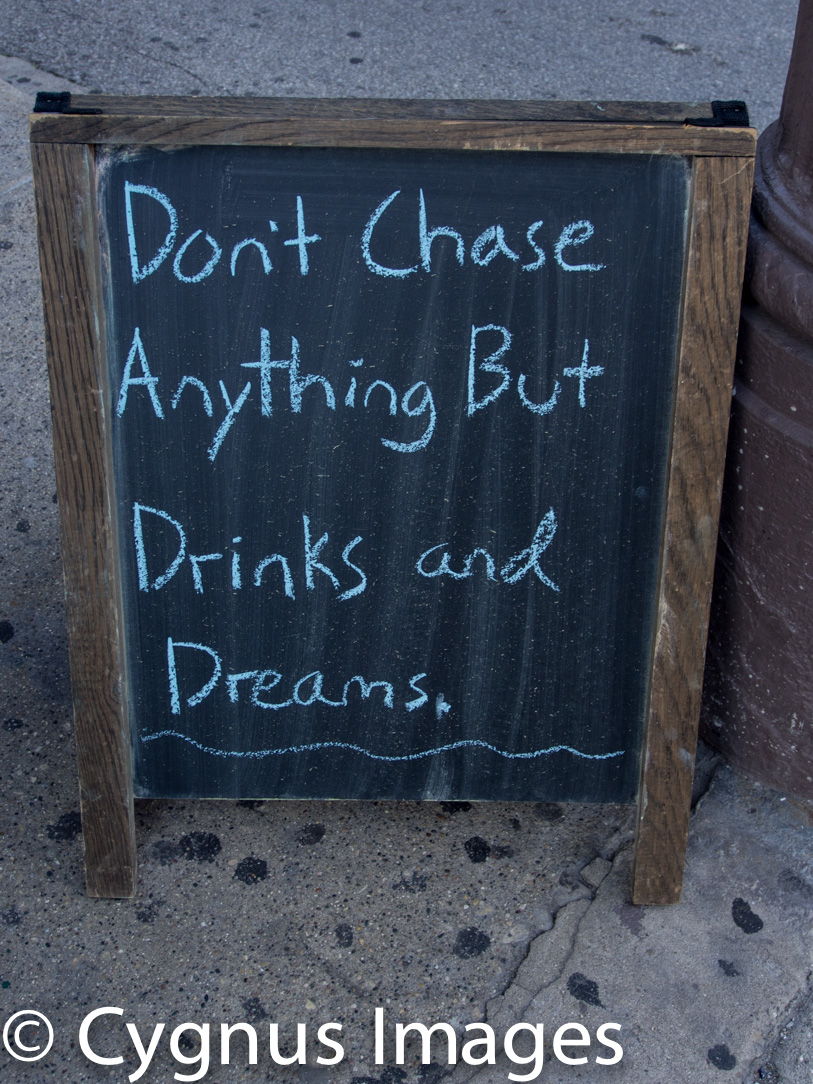 Don't Chase
Anything But
Drinks and
Dreams.
© Cygnus Images